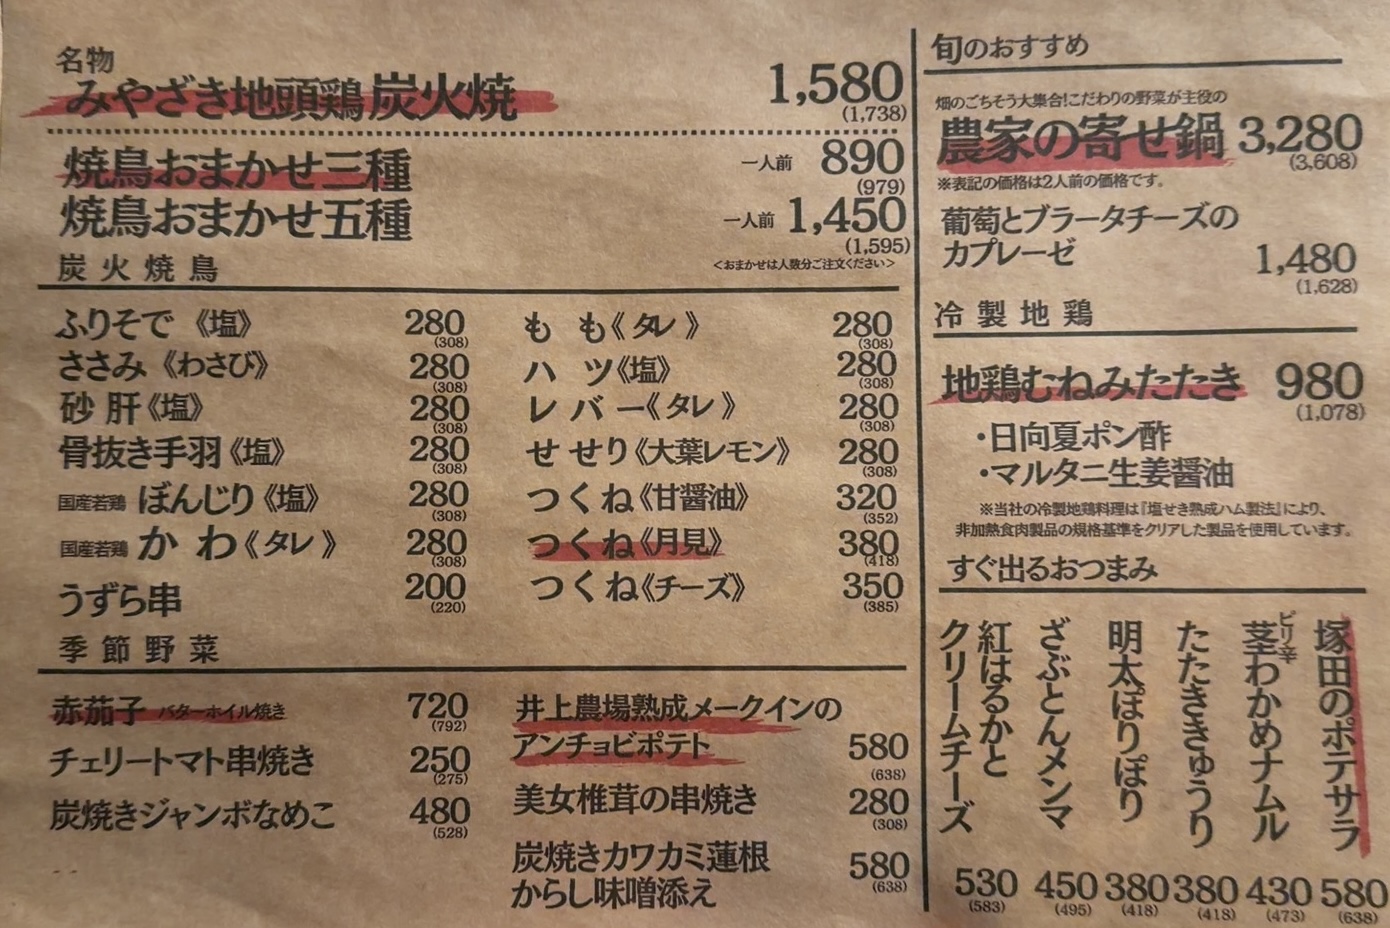 名物
みやざき地頭鶏炭火焼 1,580
(1,738)
焼鳥おまかせ三種 一人前 890
(979)
焼鳥おまかせ五種 一人前 1,450
(1,595)
<おまかせは人数分ご注文ください>
炭火焼鳥
ふりそで《塩》 280
(308)
ささみ《わさび》 280
(308)
砂肝《塩》 280
(308)
骨抜き手羽《塩》 280
(308)
国産若鶏 ぼんじり《塩》 280
(308)
国産若鶏 かわ《タレ》 280
(308)
うずら串 200
(220)
もも《タレ》 280
(308)
ハツ《塩》 280
(308)
レバー《タレ》 280
(308)
せせり《大葉レモン》 280
(308)
つくね《甘醤油》 320
(352)
つくね《月見》 380
(418)
つくね《チーズ》 350
(385)
季節野菜
赤茄子 バターホイル焼き 720
(792)
チェリートマト串焼き 250
(275)
炭焼きジャンボなめこ 480
(528)
井上農場熟成メークインの
アンチョビポテト 580
(638)
美女椎茸の串焼き 280
(308)
炭焼きカワカミ蓮根
からし味噌添え 580
(638)
旬のおすすめ
畑のごちそう大集合!こだわりの野菜が主役の
農家の寄せ鍋 3,280
(3,608)
※表記の価格は2人前の価格です。
葡萄とブラータチーズの
カプレーゼ 1,480
(1,628)
冷製地鶏
地鶏むねみたたき 980
(1,078)
・日向夏ポン酢
・マルタニ生姜醤油
※当社の冷製地鶏料理は『塩せき熟成ハム製法』により、
非加熱食肉製品の規格基準をクリアした製品を使用しています。
すぐ出るおつまみ
塚田のポテサラ 580
(638)
ピリ辛
茎わかめナムル 430
(473)
たたききゅうり 380
(418)
明太ぽりぽり 380
(418)
ざぶとんメンマ 450
(495)
紅はるかと
クリームチーズ 530
(583)